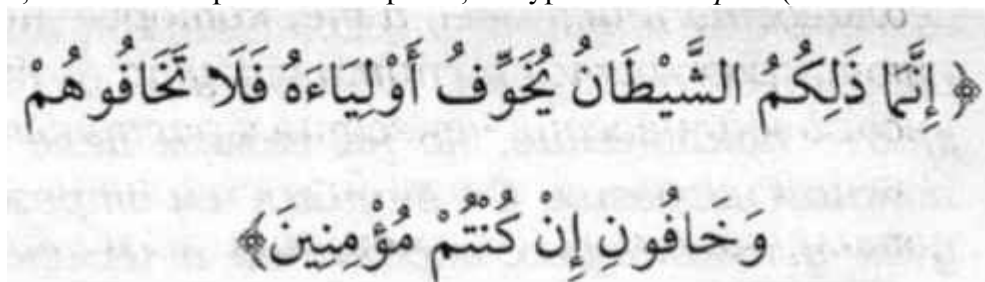 ﴿ إِنَّمَا ذَلِكُمُ الشَّيْطَانُ يُخَوِّفُ أَوْلِيَاءَهُ فَلَا تَخَافُوهُمْ
وَخَافُونِ إِنْ كُنْتُمْ مُؤْمِنِينَ﴾